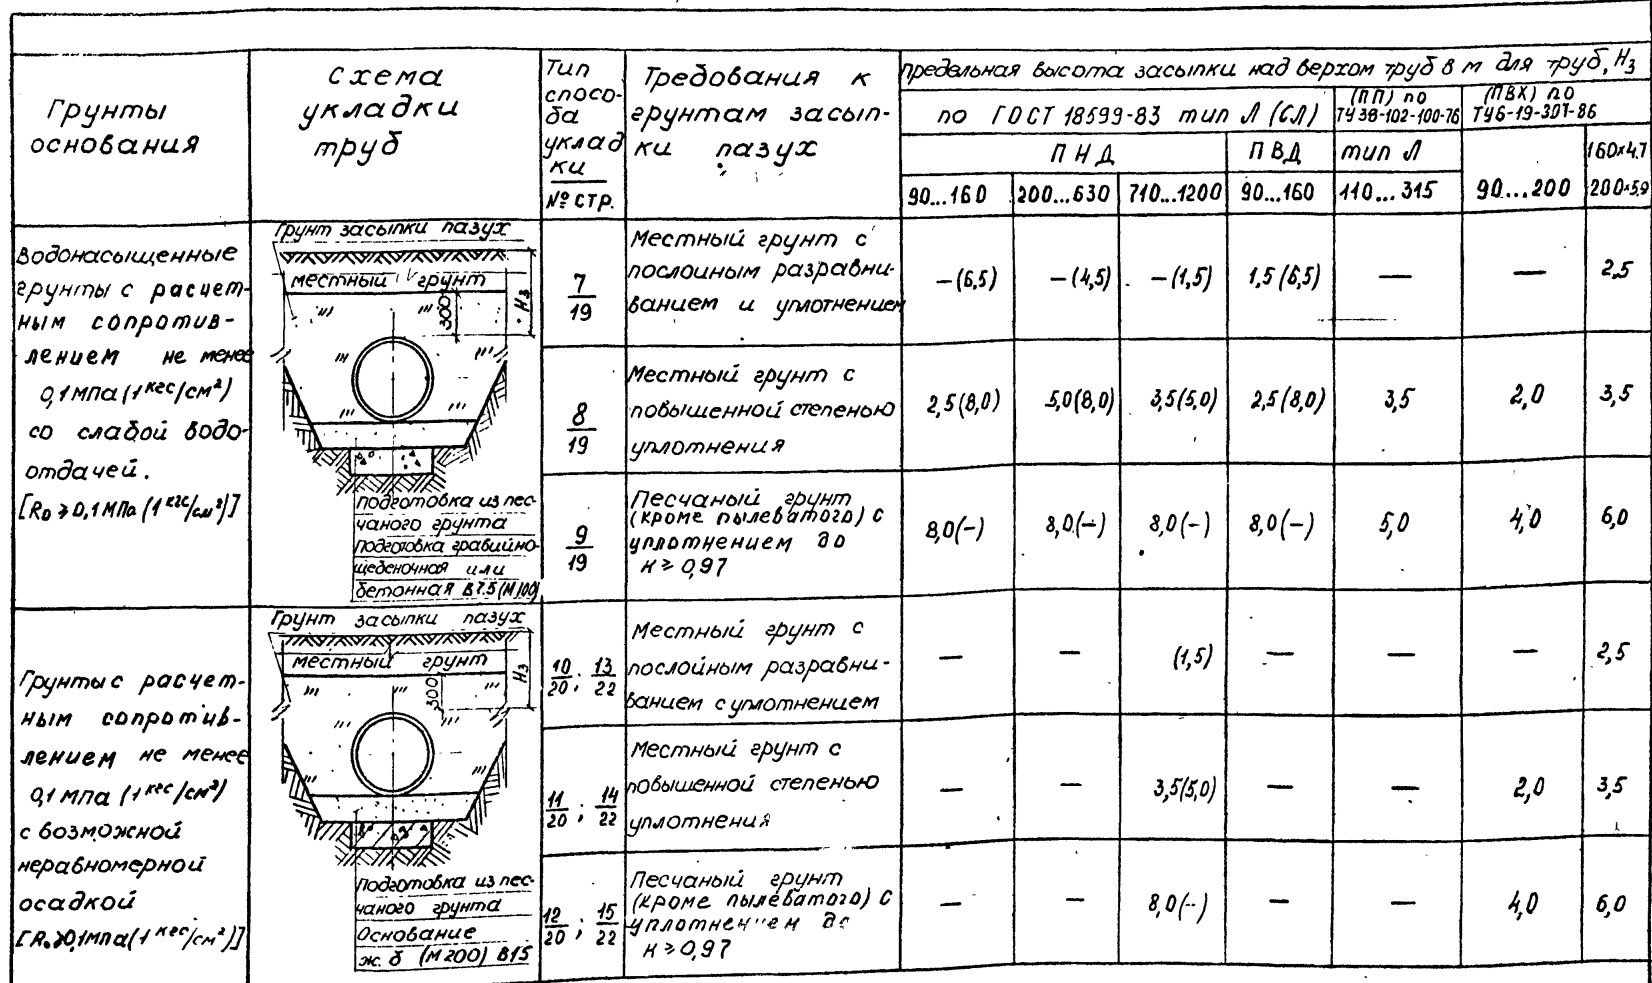 Грунты
основания
Схема
укладки
труб
Тип
спосо-
ба
уклад
ки
№ СТР.
Требования к
грунтам засып-
ки пазух
предельная высота засыпки над верхом труб в м для труб, Нз
по ГОСТ 18599-83 тип Л (СЛ)
(ПП) по
ТУ 38-102-100-76
(ПВХ) по
ТУ6-19-307-86
ПНД
ПВД
тип Л
160×4.7
90...160
200...630
710...1200
90...160
110...315
90...200
200×5,9
Водонасыщенные
грунты с расчет-
ным сопротив-
лением не менее
0,1 МПа (1 кгс/см²)
со слабой водо-
отдачей.
[R₀ ⩾ 0,1 МПа (1 кгс/см²)]
Грунт засыпки пазух
местный грунт
300
Нз
подготовка из пес-
чаного грунта
Подготовка гравийно-
щебеночная или
бетонная В7.5 (М100)
7
19
Местный грунт с
послойным разравни-
ванием и уплотнением
–(6,5)
–(4,5)
–(1,5)
1,5 (6,5)
—
—
2,5
8
19
Местный грунт с
повышенной степенью
уплотнения
2,5(8,0)
5,0(8,0)
3,5(5,0)
2,5(8,0)
3,5
2,0
3,5
9
19
Песчаный грунт
(кроме пылеватого) с
уплотнением до
К ⩾ 0,97
8,0(–)
8,0(–)
8,0(–)
8,0(–)
5,0
4,0
6,0
Грунты с расчет-
ным сопротив-
лением не менее
0,1 МПа (1 кгс/см²)
с возможной
неравномерной
осадкой
[R₀⩾0,1мпа(1 кгс/см²)]
Грунт засыпки пазух
местный грунт
300
Нз
Подготовка из пес-
чаного грунта
Основание
ж.б (М200) В15
10 ; 13
20 ; 22
Местный грунт с
послойным разравни-
ванием с уплотнением
—
—
(1,5)
—
—
—
2,5
11 ; 14
20 ; 22
Местный грунт с
повышенной степенью
уплотнения
—
—
3,5(5,0)
—
—
2,0
3,5
12 ; 15
20 ; 22
Песчаный грунт
(кроме пылеватого) с
уплотнением до
К ⩾ 0,97
—
—
8,0(–)
—
—
4,0
6,0